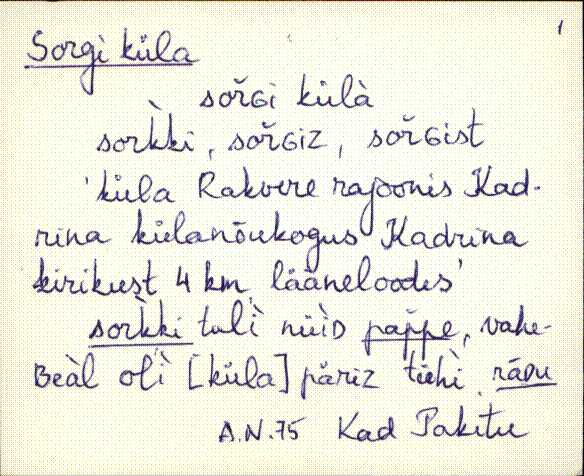 1
Sorgi küla
sor̆Gi külà
sork̀ki, sor̆Giz, sor̆Gist
'küla Rakvere rajoonis Kad-
rina külanõukogus Kadrina
kirikust 4 km lääneloodes'
sork̀ki tulì nüìD pap̆pe, vahe-
Beàl olì [küla] päriz tiehì
A.N.75 Kad Pakitu